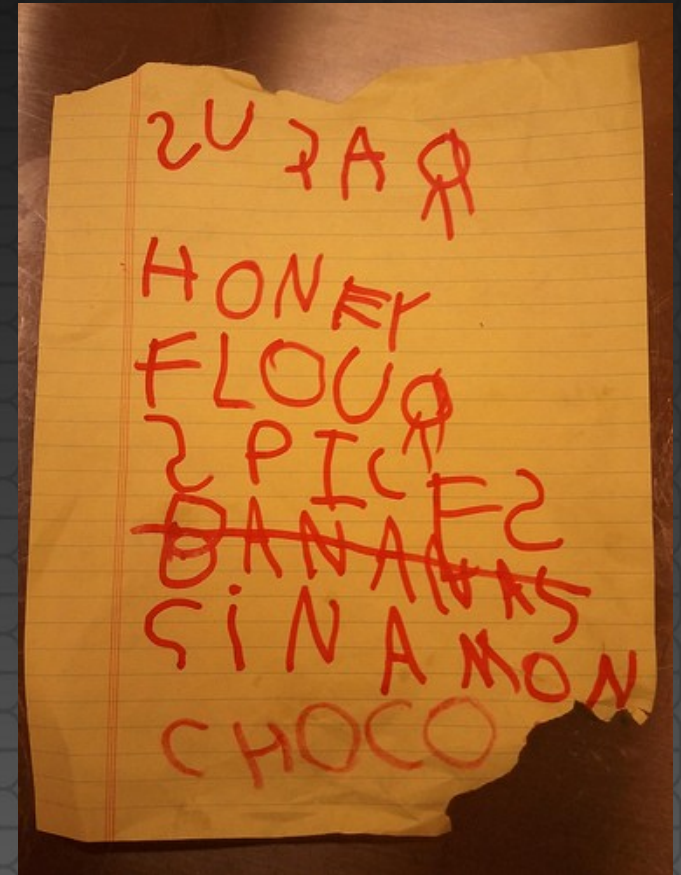 SUGAR
HONEY
FLOUR
SPICES
BANANAS
SINAMON
CHOCO